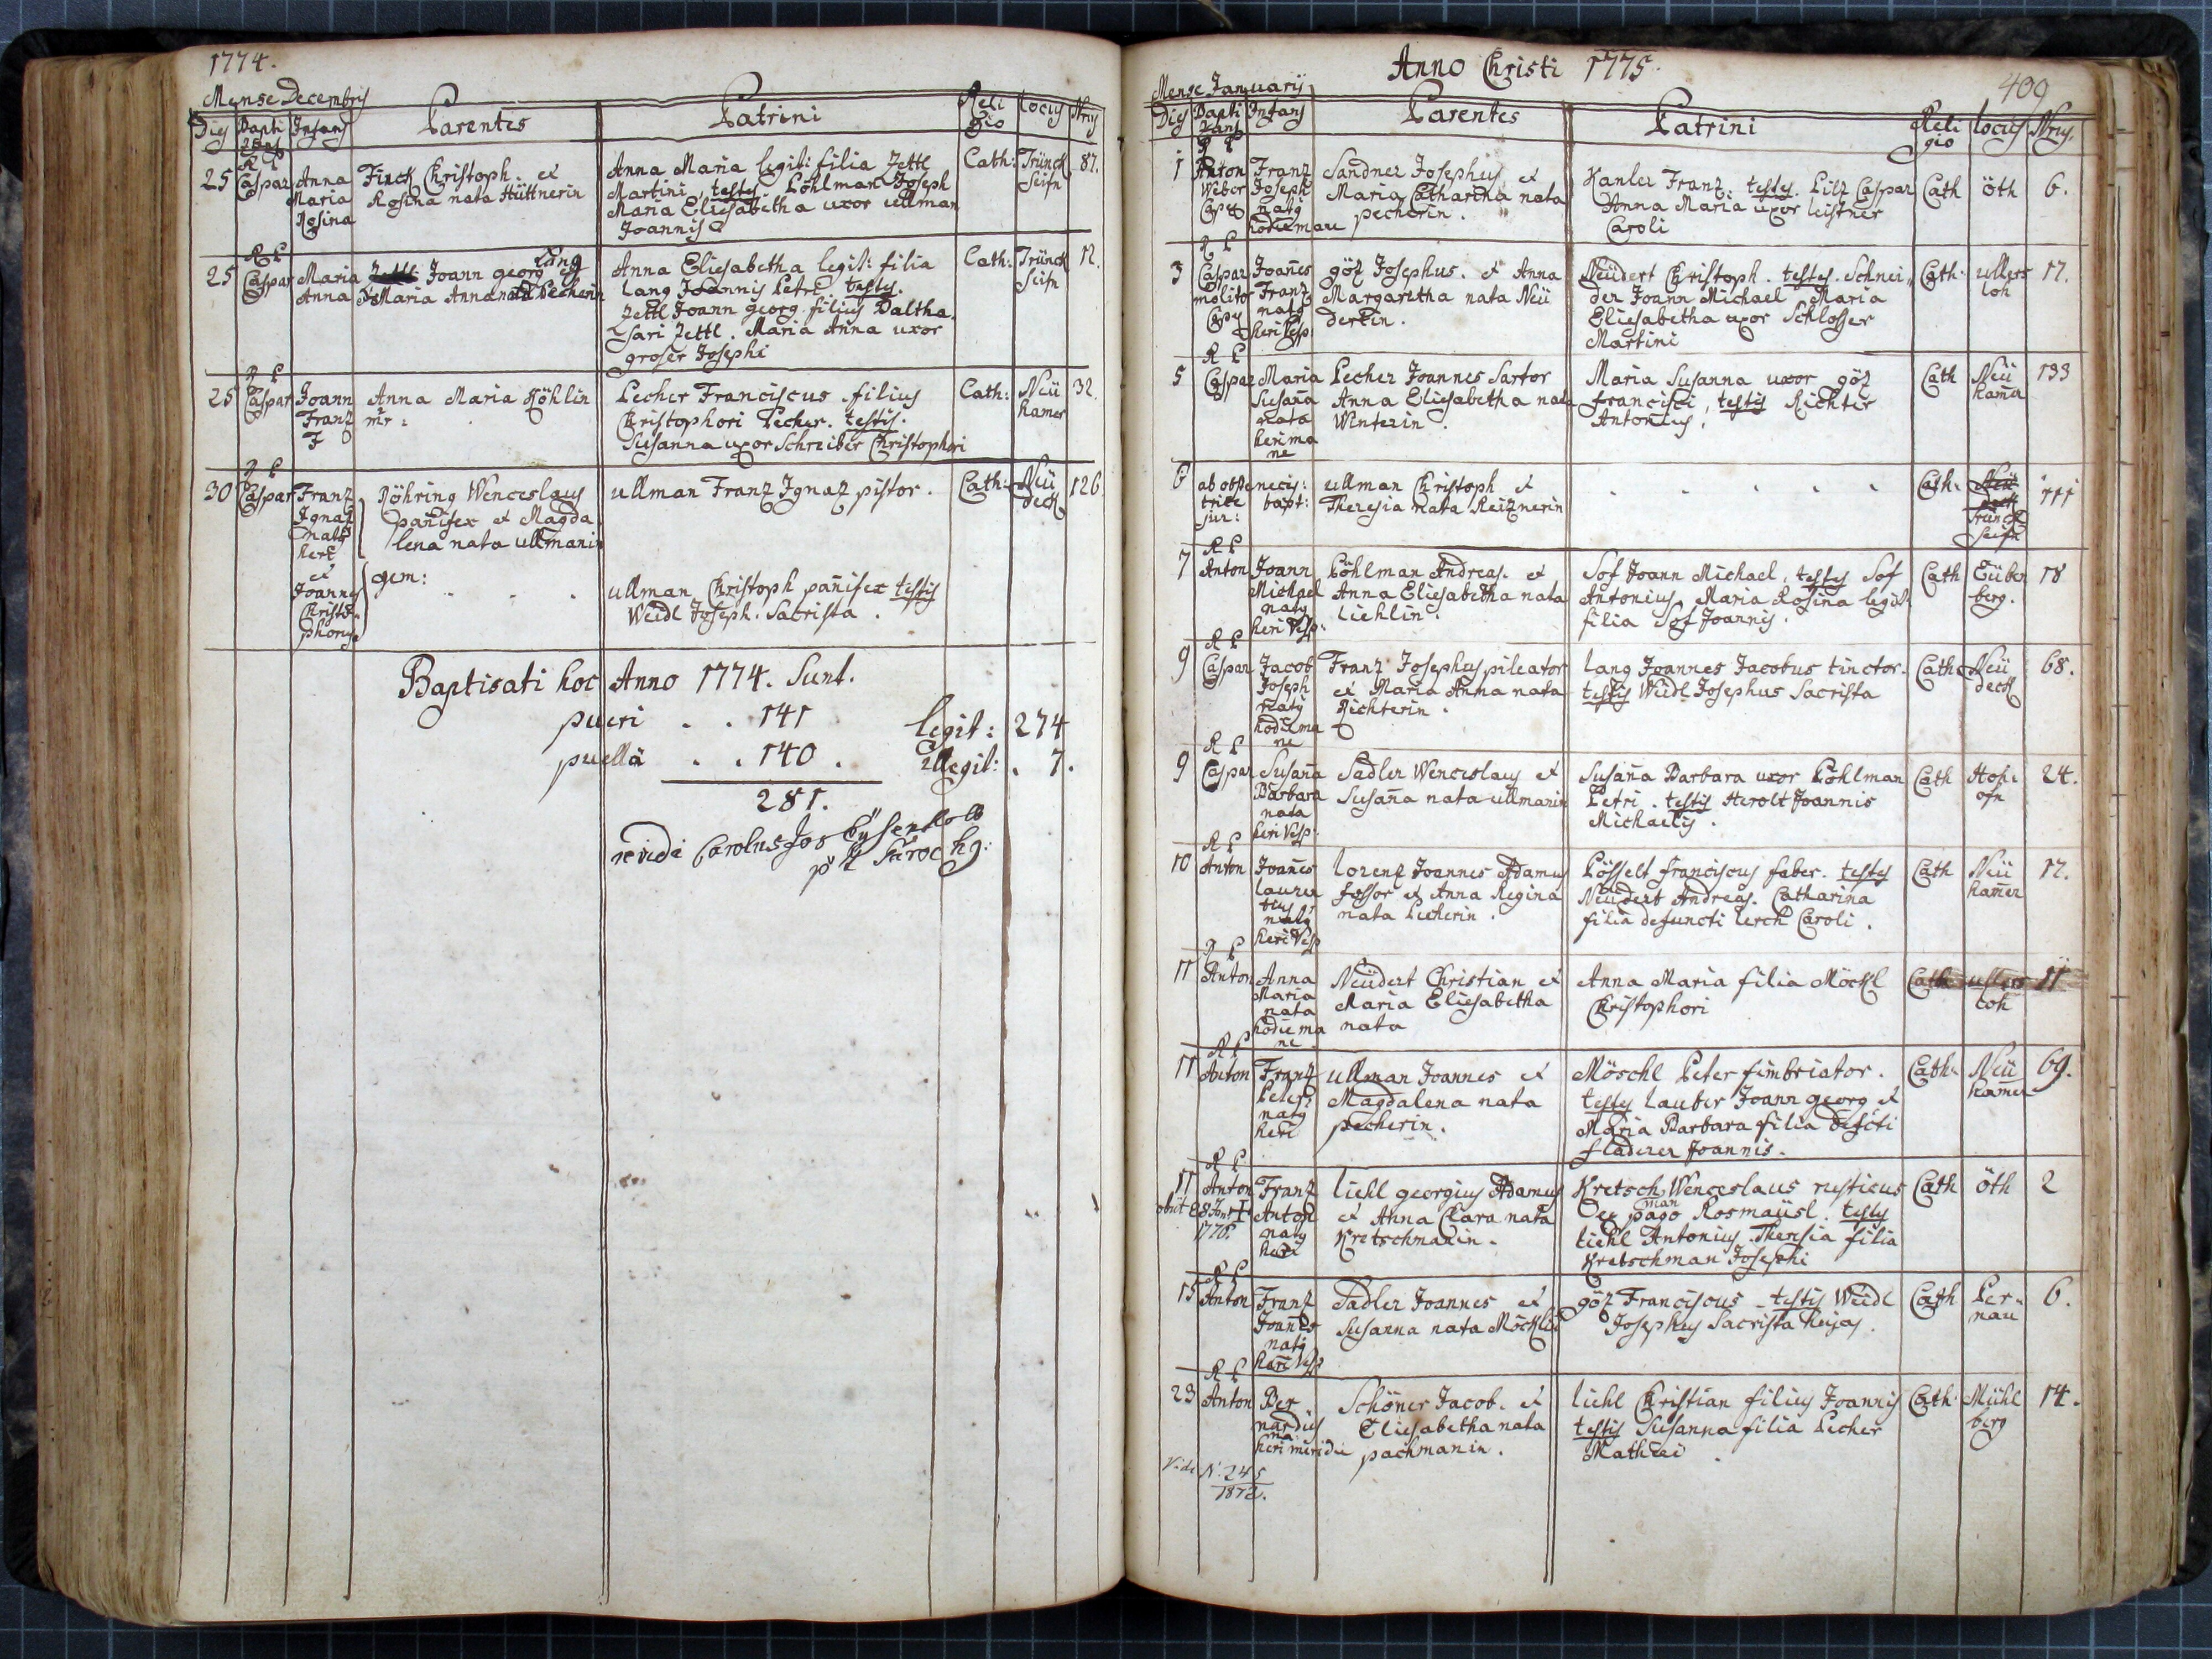 1774.
Mense Decembris
Dies Bapti Infans Parentes Patrini Reli gio Locus Nrus
zans
R P
25 Caspar Anna Maria Rosina
Finck Christoph. et
Rosina nata Hüttnerin
Anna Maria legit: filia Zettl
Martini, testis. Pöhlman Joseph
Maria Eliesabetha uxor ullman
Joannis
Cath: Trünck Seifn 87.
R P
25 Caspar Maria Anna
Lang
Joann georg et
Maria Anna nata Pecherin
Anna Eliesabetha legit: filia
Lang Joannis Petri testis.
Zettl Joann georg filius Baltha.
sari Zettl. Maria Anna uxor
groser Josephi
Cath: Trünck Seifn 12.
R P
25 Caspar Joann Franz
Anna Maria Köhlin
Pecher Franciscus filius
Christophori Pecher. testis.
Susanna uxor Schreiber Christophori
Cath: Neü hamer 32.
R P
30 Caspar Franz Ignaz natg heri
Röhring Wenceslaus
panifex et Magda
lena nata ullmanin
ullman Franz Ignaz pistor.
Cath: Neü deck 126
et
Joannes Christo phorus
gem:
ullman Christoph panifex testis
Weidl Joseph. Sacrista.
Baptisati hoc Anno 1774. Sunt.
pueri . . 141
puellä . . 140.
281.
legit: 274
illegit: . 7.
revidi Carolus Jos
Anno Christi 1775.
409
Mense January
Dies Bapti Infans Parentes Patrini Reli gio Locus Nrus.
zans
R P
1 Anton Weber Cap
Franz Joseph natg hodie mane
Sandner Josephus et
Maria Catharina nata
pecherin.
Kanler Franz. testis. Pilz Caspar
Anna Maria uxor Leistner
Caroli
Cath öth 6.
R P
3 Caspar molitor
Joanes Franz natg heri Vesp
göz Josephus. et Anna
Margaretha nata Neü
dertin.
Neüdert Christoph. testes. Schnei
der Joann Michael Maria
Eliesabetha uxor Schlosser
Martini
Cath. ullers loh 17.
R P
5 Caspar Maria Susana nata heri ma ne
Pecher Joannes Sartor
Anna Eliesabetha nata
Winterin.
Maria Susanna uxor göz
francisci, testis Richter
Antonius.
Cath Neü hamer 133
6 ab obste trice jur:
necis: bapt:
ullman Christoph et
Theresia nata Reiznerin
Cath. Trünck Seifn 111
R P
7 Anton Joann Michael natg heri Vesp.
Pöhlman Andreas. et
Anna Eliesabetha nata
Liehlin.
Sof Joann Michael, testes Sof
Antonius, Maria Rosina legit.
filia Sof Joannis.
Cath Eüben berg. 18
R P
9 Caspar Jacob Joseph natg hodie ma ne
Franz Josephus pileator
et Maria Anna nata
Richterin.
Lang Joannes Jacobus tinctor.
testis Weidl Josephus Sacrista
Cath Neü deck 68.
R P
9 Caspar Susana Barbara nata heri Vesp.
Sadler Wenceslaus et
Susana nata ullmanin
Susana Barbara uxor Pöhlman
Petri. testis Herolt Joannis
Michaelis.
Cath Hoh ofn 24.
R P
10 Anton Joanes Lauren tius natg heri Vesp
Lorenz Joannes Adamus
fossor et Anna Regina
nata Pecherin.
Pösselt franciscus faber. testes
Neüdert Andreas. Catharina
filia defuncti Lerch Caroli.
Cath Neü hamer 12.
R P
11 Anton Anna Maria nata hodie ma ne
Neüdert Christian et
Maria Eliesabetha
nata
Anna Maria filia Möckl
Christophori
Cath ullers loh 11
R P
11 Anton Franz Peter natg heri
ullman Joannes et
Magdalena nata
pecherin.
Möschl Peter fimbriator.
testes Lauber Joann georg et
Maria Barbara filia defcti
fladerer Joannis.
Cath. Neü hamer 69.
R P
11 Anton Franz Anton natg heri
obiit
Liehl georgius Adamus
et Anna Clara nata
Kretschmanin.
Kretsch Wenceslaus rusticus
man
ex pago Rosmaüsl. testes
Liehl Antonius. Theresia filia
Kretschman Josephi
Cath öth 2
R P
15 Anton Franz Joanes natg heri Vesp
Sadler Joannes et
Susanna nata Möcklin
göz Franciscus testis Weidl
Josephus Sacrista hujas.
Cath Per nau 6.
R P
23 Anton Ber nardus na heri meridie
Schöner Jacob. et
Eliesabetha nata
pachmanin.
Liehl Christian filius Joannis
testis Susanna filia Pecher
Mathiei
Cath. Mühl berg 14.
Vide N. 245
1872.